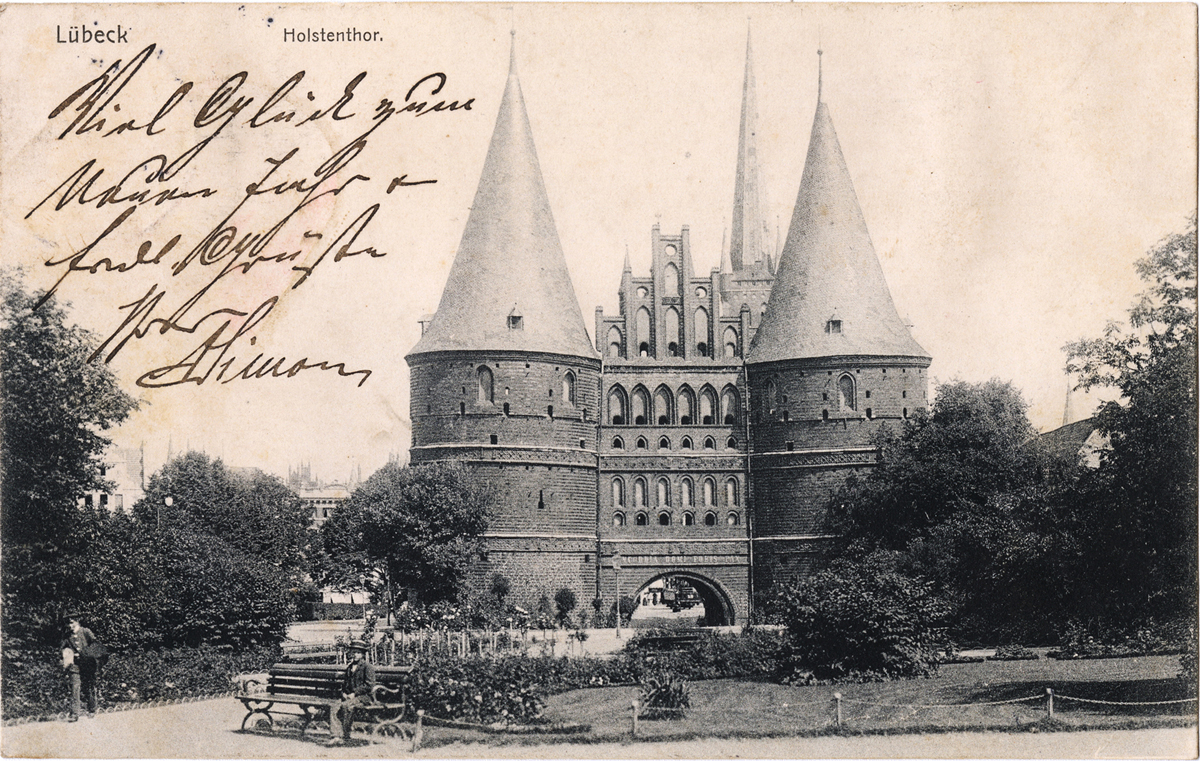 Lübeck
Holstenthor.
Viel Glück zum
Neuen Jahr &
frdl. Grüße
Simon